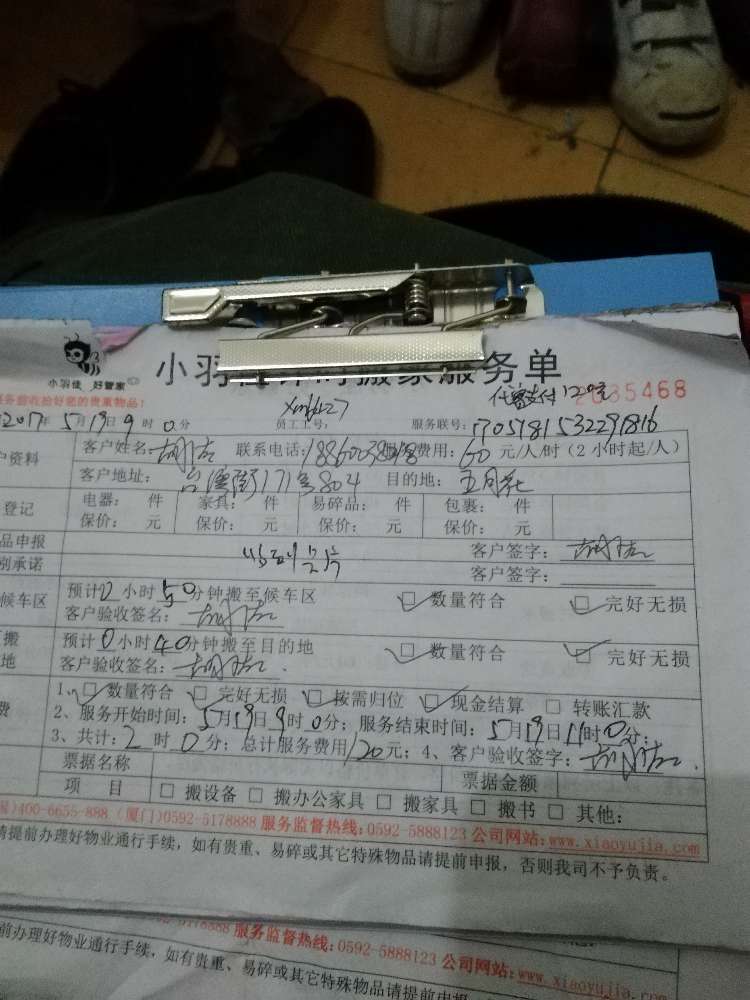 小羽佳 好管家
小羽佳计时搬家服务单
服务前收验好您的贵重物品!
代客支付120元
2035468
2017年5月19日9时0分 员工工号: 服务联号: 170518153229
客户资料 客户姓名: 联系电话: 费用: 60元/人/时(2小时起/人)
客户地址: 171号804 目的地:
登记 电器: 件 家具: 件 易碎品: 件 包裹: 件
保价: 元 保价: 元 保价: 元 保价: 元
品申报 客户签字:
别承诺 客户签字:
候车区 预计0小时50分钟搬至候车区 数量符合 完好无损
客户验收签名:
搬 预计0小时40分钟搬至目的地 数量符合 完好无损
地 客户验收签名:
费 1、 数量符合 完好无损 按需归位 现金结算 转账汇款
2、服务开始时间:5月19日9时0分;服务结束时间:5月19日11时0分;
3、共计:2时0分;总计服务费用120元;4、客户验收签字:
票据名称 票据金额
项 目 搬设备 搬办公家具 搬家具 搬书 其他:
400-6655-888 (厦门)0592-5178888 服务监督热线:0592-5888123 公司网站:www.xiaoyujia.com
请提前办理好物业通行手续,如有贵重、易碎或其它特殊物品请提前申报,否则我司不予负责。
5178888 服务监督热线:0592-5888123 公司网站:www.xiaoyujia
前办理好物业通行手续,如有贵重、易碎或其它特殊物品请提前申报